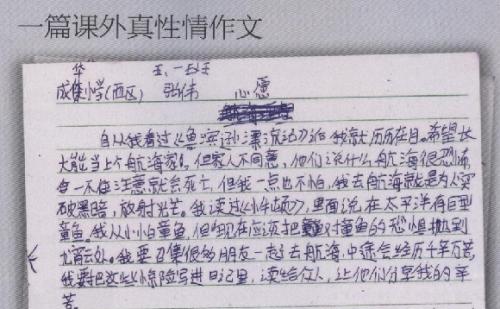 一篇课外真性情作文
华
五、一班
成集小学(西区) 张伟 心愿
自从我看过《鱼滨逊漂流记》后 我就历历在目。希望长
大能当上个航海家。但家人不同意，他们说什么航海很恐怖
会一不注意就会死亡，但我一点也不怕，我去航海就是为人突
破黑暗，放射光芒。我读过《小牛顿》，里面说在太平洋有巨型
章鱼。我从小怕章鱼，但现在应该把对章鱼的恐惧抛到
九霄云外。我要召集很的朋友一起去航海，中途会经历千辛万苦，
我要把这些惊险写进日记里，读给众人，让他们分享我的辛
苦。